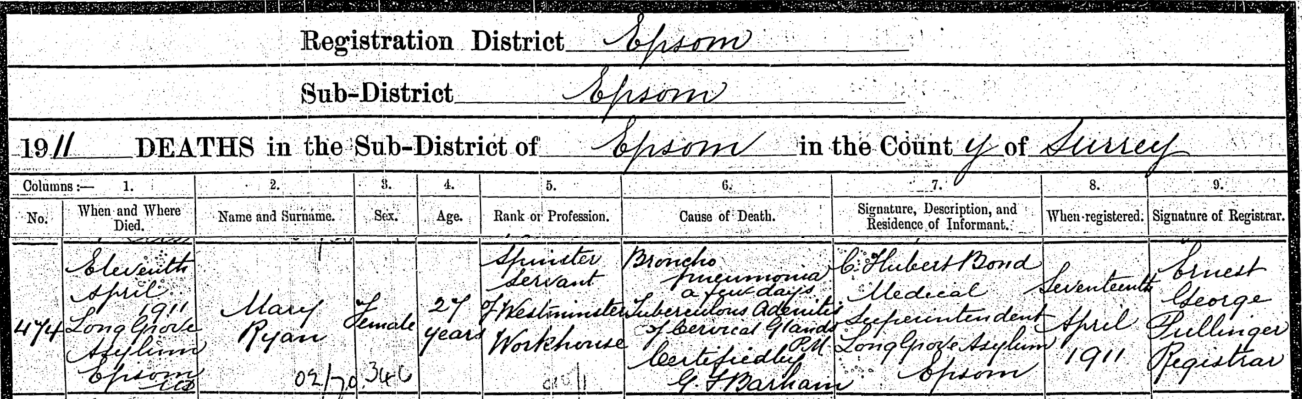 Registration District Epsom
Sub-District Epsom
1911 DEATHS in the Sub-District of Epsom in the County of Surrey
Columns:— 1. 2. 3. 4. 5. 6. 7. 8. 9.
No. When and Where Died. Name and Surname. Sex. Age. Rank or Profession. Cause of Death. Signature, Description, and Residence of Informant. When registered. Signature of Registrar.
474
Eleventh
April
1911
Long Grove
Asylum
Epsom
Mary
Ryan
Female
27
years
Spinster
Servant
of Westminster
Workhouse
Broncho
pneumonia
a few days
Tuberculous Adenitis
of Cervical Glands
P.M.
Certified by
G F Barham
C. Hubert Bond
Medical
Superintendent
Long Grove Asylum
Epsom
Seventeenth
April
1911
Ernest
George
Pullinger
Registrar
02/70 346